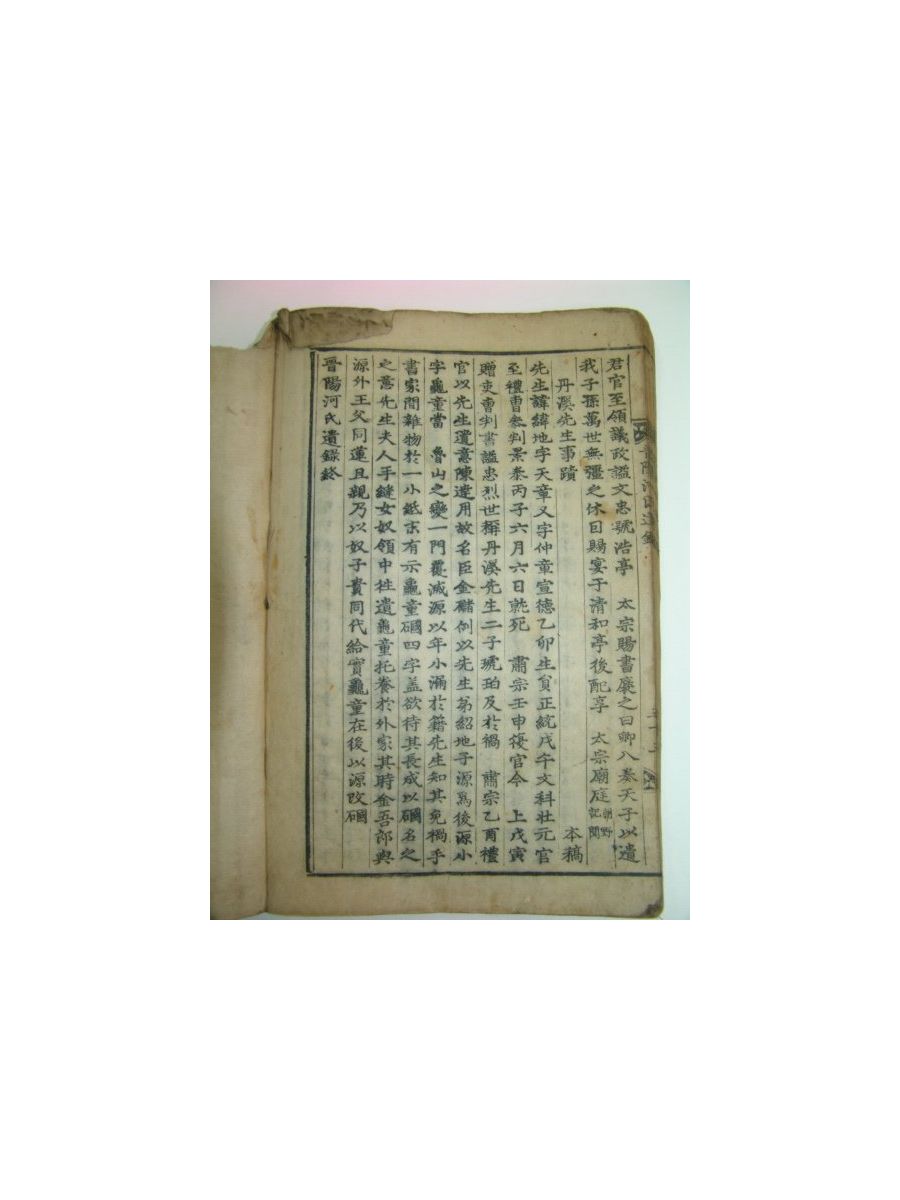 君官至領議政謚文忠號浩亭 太宗賜書廢之曰卿八葉天子以遺
我子孫萬世無彊之休曰賜宴于清和亭後配享 太宗廟庭朝野記聞
丹溪先生事蹟 本稿
先生諱緯地字天章又字仲章宣德乙卯生貟正統戊午文科壯元官
至禮曹叅判景泰丙子六月六日就死 肅宗壬申復官今 上戊寅
贈吏曹判書謚忠烈世稱丹溪先生二子琥珀及於禍 肅宗乙酉禮
官以先生遺意陳達用故名臣金䃴例以先生弟紹地子源爲後源小
字龜童當 魯山之變一門覆滅源以年小漏於籍先生知其免禍手
書家間雜物於一小紙末有示龜童䃲四字盖欲待其長成以䃲名之
之意先生夫人手縫女奴領中性遺龜童托養於外家其時金吾郎與
源外王父同蓮且親乃以奴子貴同代給實龜童在後以源改䃲
晋陽河氏遺錄終
晋陽河氏遺錄